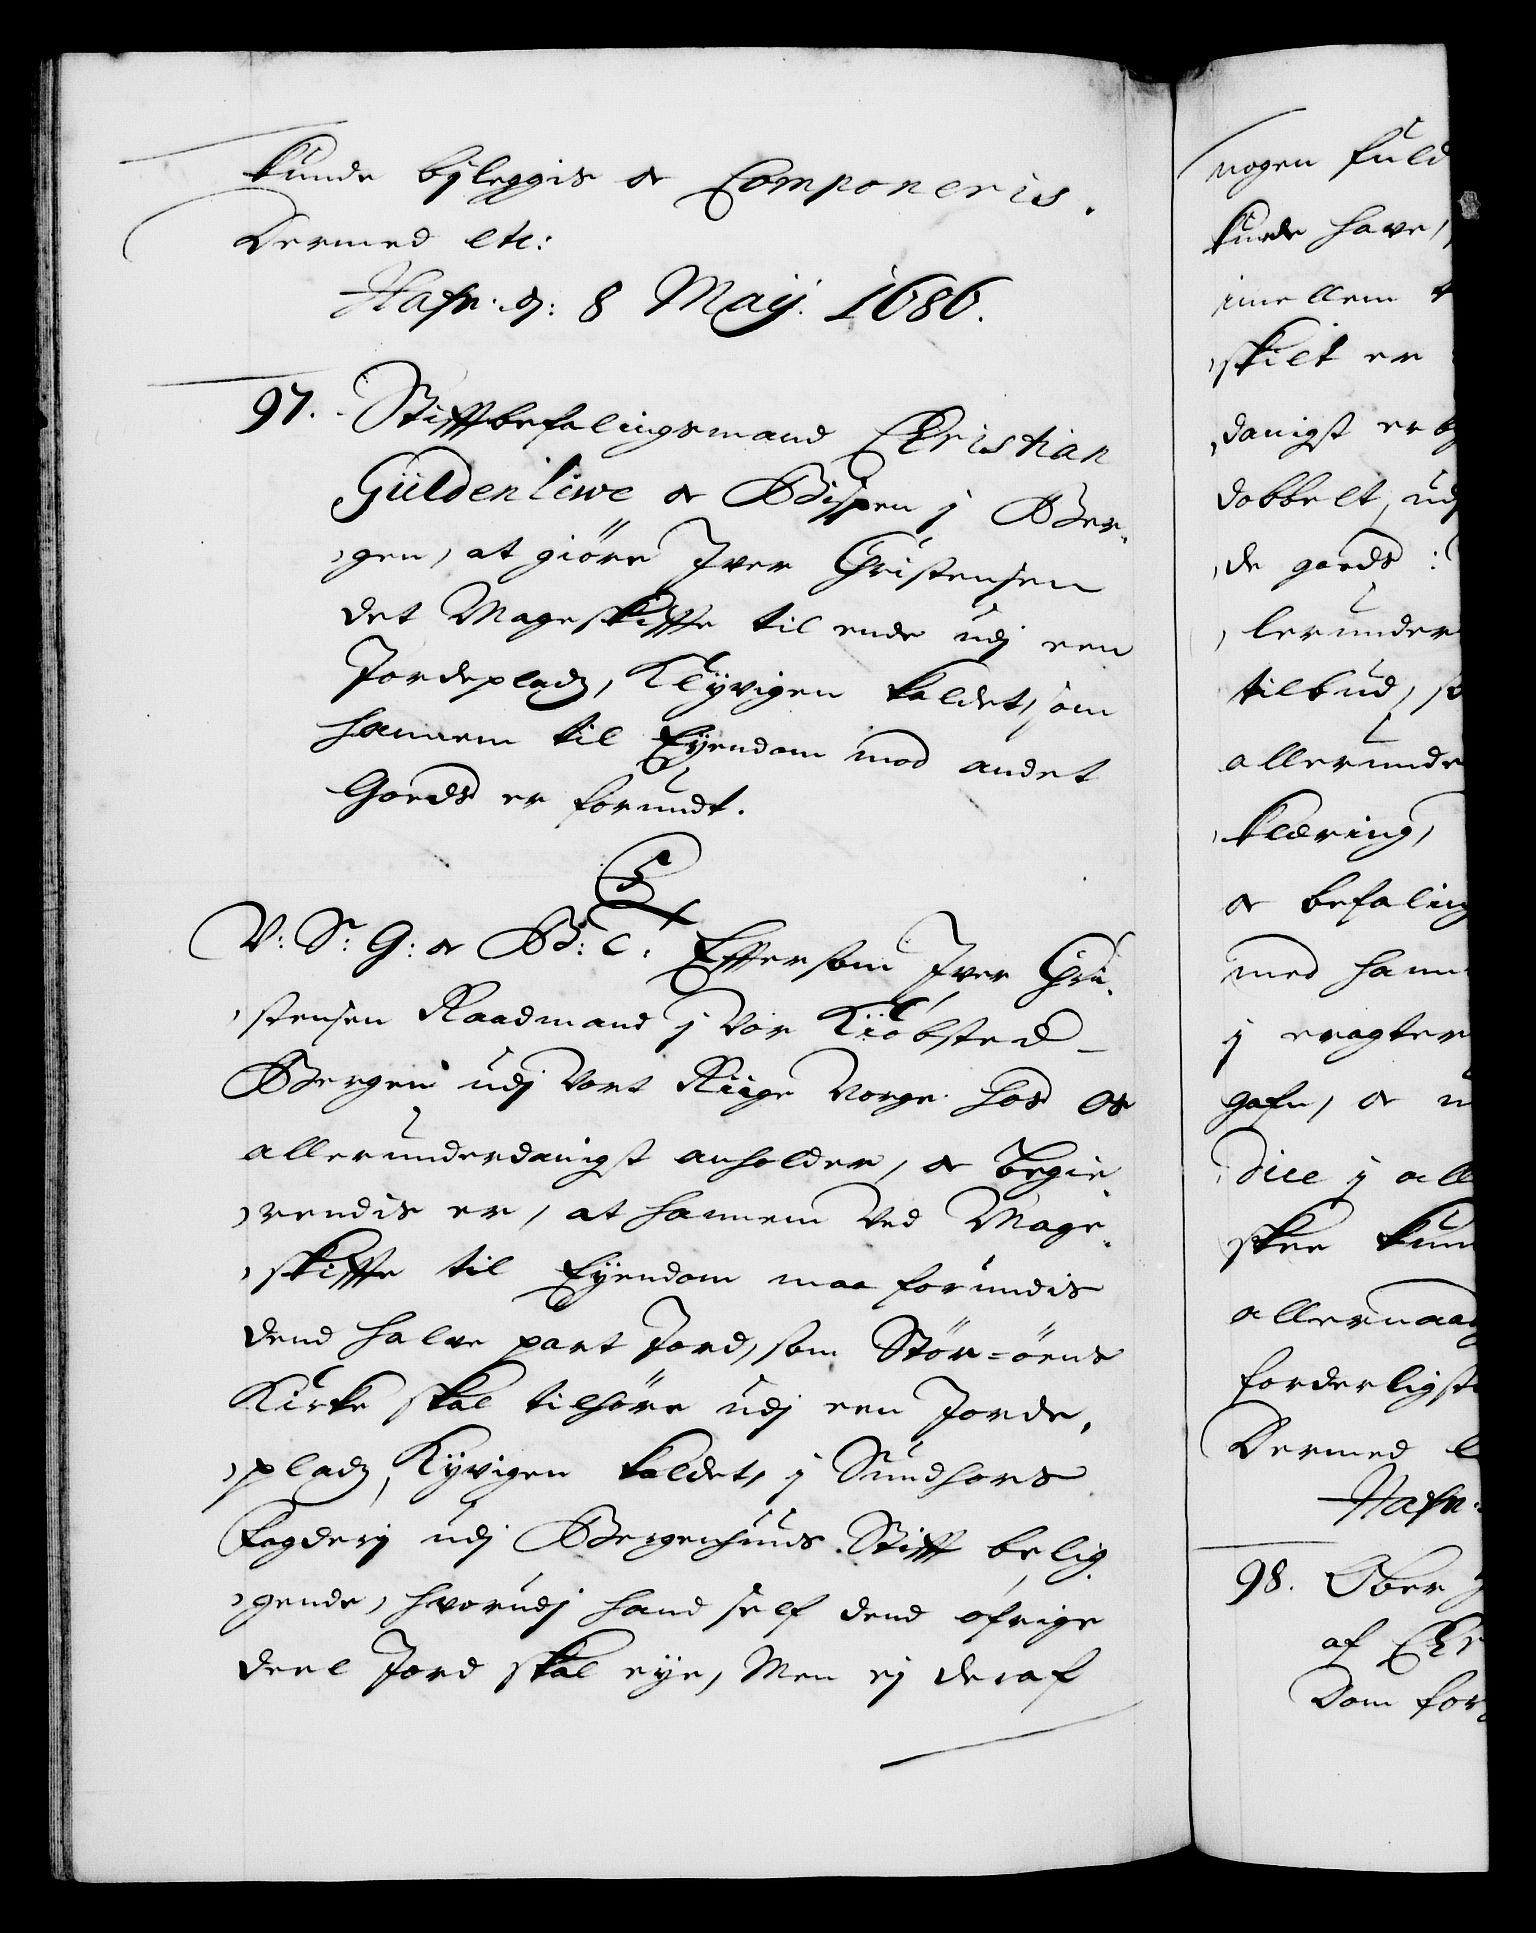 kunde byleggis oc Componeris.
Dermed etc:
Hafn: d: 8 Maij. 1686.
97. Stifftbefalingsmand Christian
Güldenlewe oc Bispen j Ber-
gen, at giöre Iver Christensen
det Mageskiffte til ende udj een
Jordeplads, Klyvigen kaldet, som
hannem til Eyendom mod andet
Goeds er forundt.
C5
V: S: G: oc B: C: Effterson Iver Chri-
stensen Raadmand j Vor Kiöbsted
Bergen udj Vort Riige Norge hos Os
allerunderdanigst anholder, oc begie-
rendis er, at hannem Ved Mage-
skiffte til Eyendom maa forundis
dend halve part Jord, som Stör-öens
Kirke skal tilhöre udj een Jorde-
plads, Kyvigen kaldet, j Sundhors
Fogderj udj Bergenhuus Stifft belig-
gende, hvorudj hand self dend öfrige
deel Jord skal eye, Men ej deraf
nogen fuld
kunde have,
imellem
skilt er
danigst erby
dobbelt, udj
de goeds:
lerunder
tilbud, so
allerunde
klæring,
oc befaling
med hann
j eragter
hafn, oc u
dice j all
skee kun
allernaad
forderligst
Dermed e
Hafn:
98. Ober
af Chr
Dom for